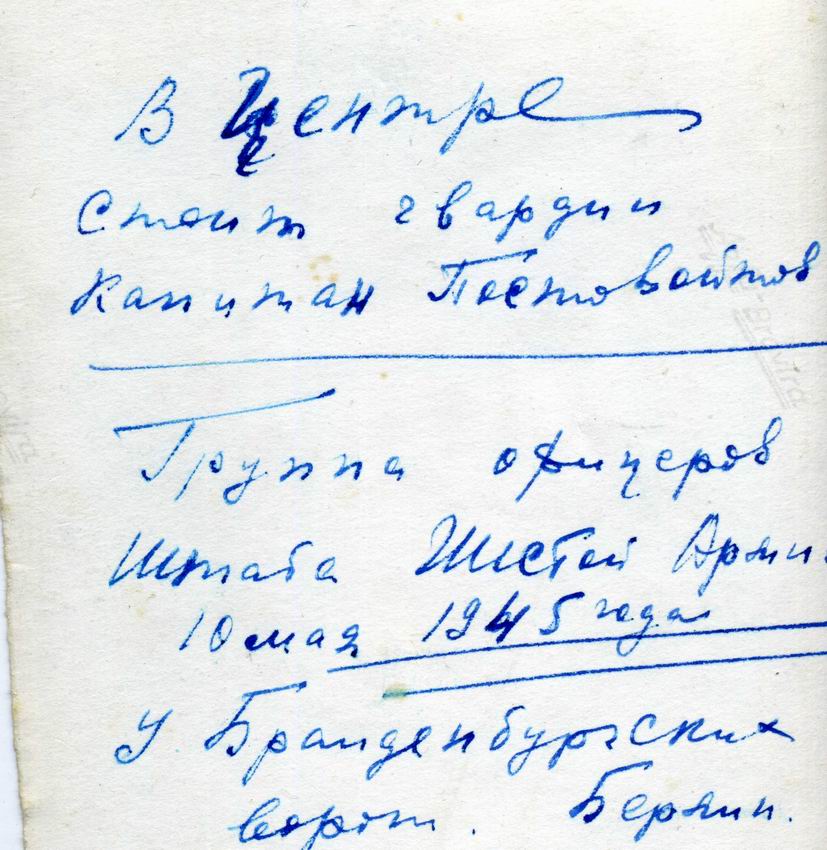 В Центре
Стоит гвардии
Капитан Постовойтов
Группа офицеров
Штаба Шестой Армии
10 мая 1945 года
У Бранденбургских
ворот. Берлин.